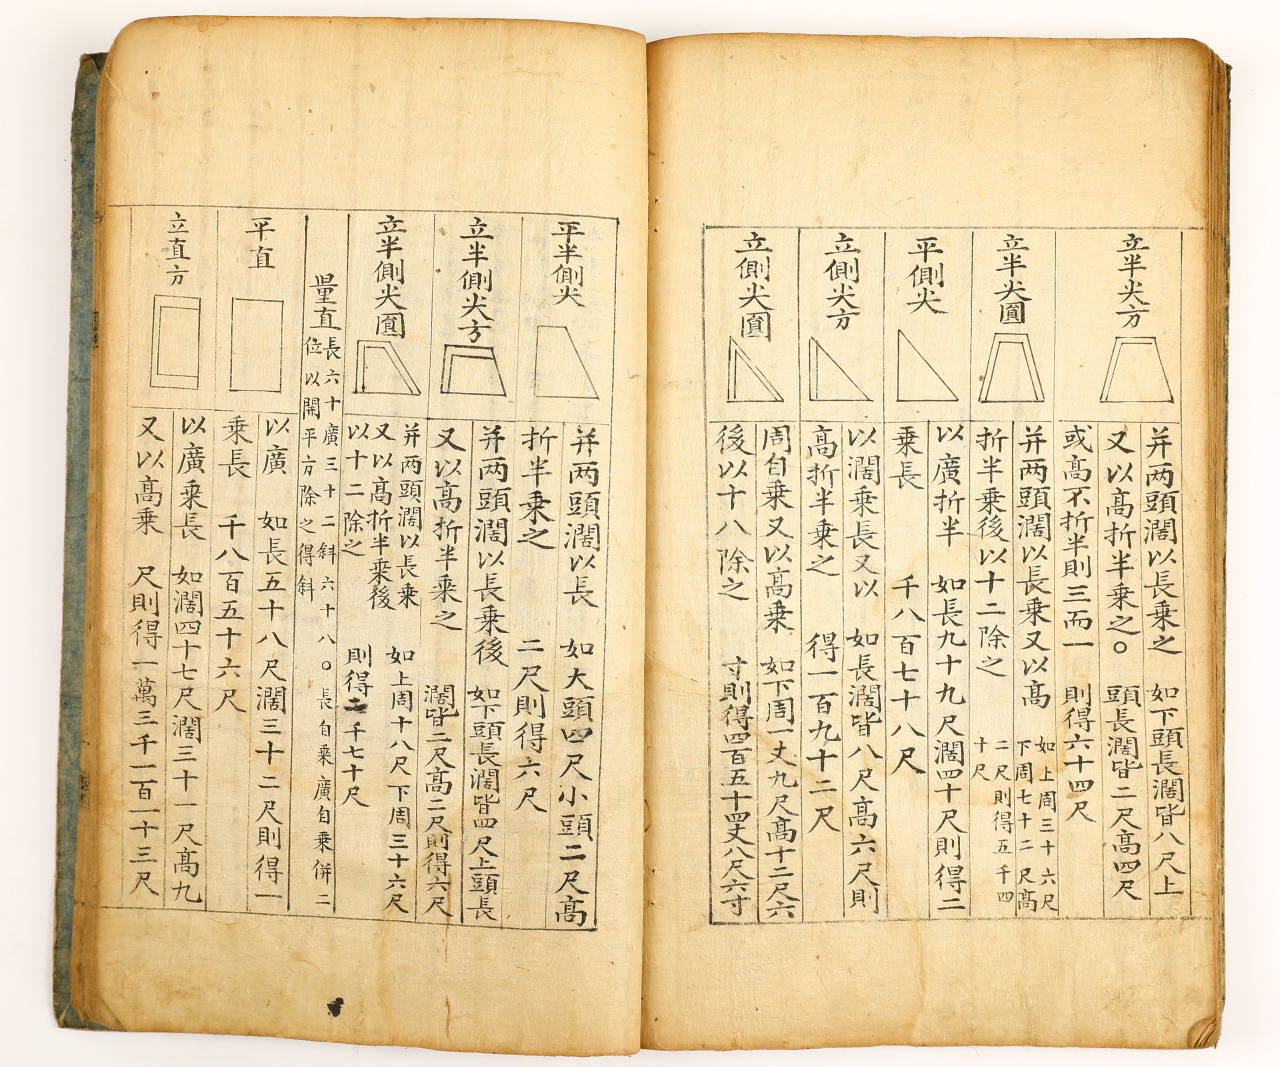 立半尖方
并两頭濶以長乘之
又以高折半乘之〇
或高不折半則三而一
如下頭長濶皆八尺上
頭長濶皆二尺高四尺
則得六十四尺
立半尖圓
并两頭濶以長乘又以高
折半乘後以十二除之
如上周三十六尺
下周七十二尺高
二尺則得五千四
十尺
平側尖
以廣折半
乘長
如長九十九尺濶四十尺則得二
千八百七十八尺
立側尖方
以濶乘長又以
高折半乘之
如長濶皆八尺高六尺則
得一百九十二尺
立側尖圓
周自乘又以高乘
後以十八除之
如下周一丈九尺高十二尺六
寸則得四百五十四丈八尺六寸
平半側尖
并两頭濶以長
折半乘之
如大頭四尺小頭二尺高
二尺則得六尺
立半側尖方
并两頭濶以長乘後
又以高折半乘之
如下頭長濶皆四尺上頭長
濶皆二尺高二尺則得六尺
立半側尖圓
并两頭濶以長乘
又以高折半乘後
以十二除之
如上周十八尺下周三十六尺
則得二千七十尺
量直
長六十廣三十二斜六十八〇長自乘廣自乘併二
位以開平方除之得斜
平直
以廣
乘長
如長五十八尺濶三十二尺則得一
千八百五十六尺
立直方
以廣乘長
又以高乘
如濶四十七尺濶三十一尺高九
尺則得一萬三千一百一十三尺